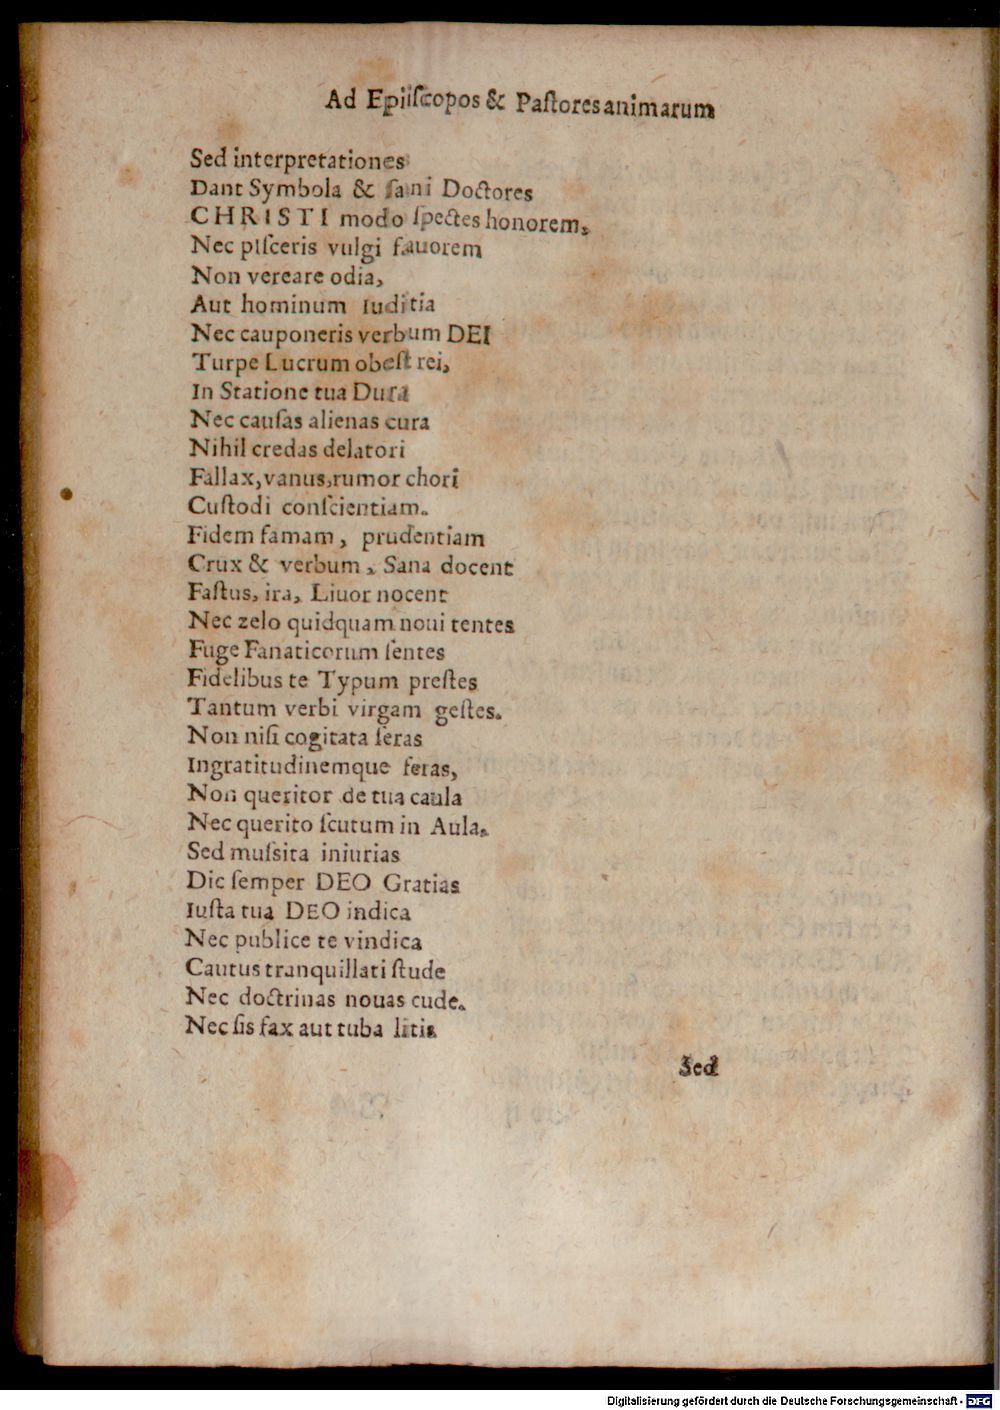 Ad Epiiſcopos & Paſtores animarum
Sed interpretationes
Dant Symbola & ſani Doctores
CHRISTI modo ſpectes honorem,
Nec piſceris vulgi fauorem
Non vereare odia,
Aut hominum iuditia
Nec cauponeris verbum DEI
Turpe Lucrum obeſt rei,
In Statione tua Dura
Nec cauſas alienas cura
Nihil credas delatori
Fallax, vanus, rumor chori
Cuſtodi conſcientiam.
Fidem famam, prudentiam
Crux & verbum, Sana docent
Faſtus, ira, Liuor nocent
Nec zelo quidquam noui tentes
Fuge Fanaticorum ſentes
Fidelibus te Typum preſtes
Tantum verbi virgam geſtes.
Non niſi cogitata ſeras
Ingratitudinemque feras,
Non queritor de tua caula
Nec querito ſcutum in Aula.
Sed muſsita iniurias
Dic ſemper DEO Gratias
Iuſta tua DEO indica
Nec publice te vindica
Cautus tranquillati ſtude
Nec doctrinas nouas cude.
Nec ſis fax aut tuba litis
Sed
Digitalisierung gefördert durch die Deutsche Forschungsgemeinschaft - DFG